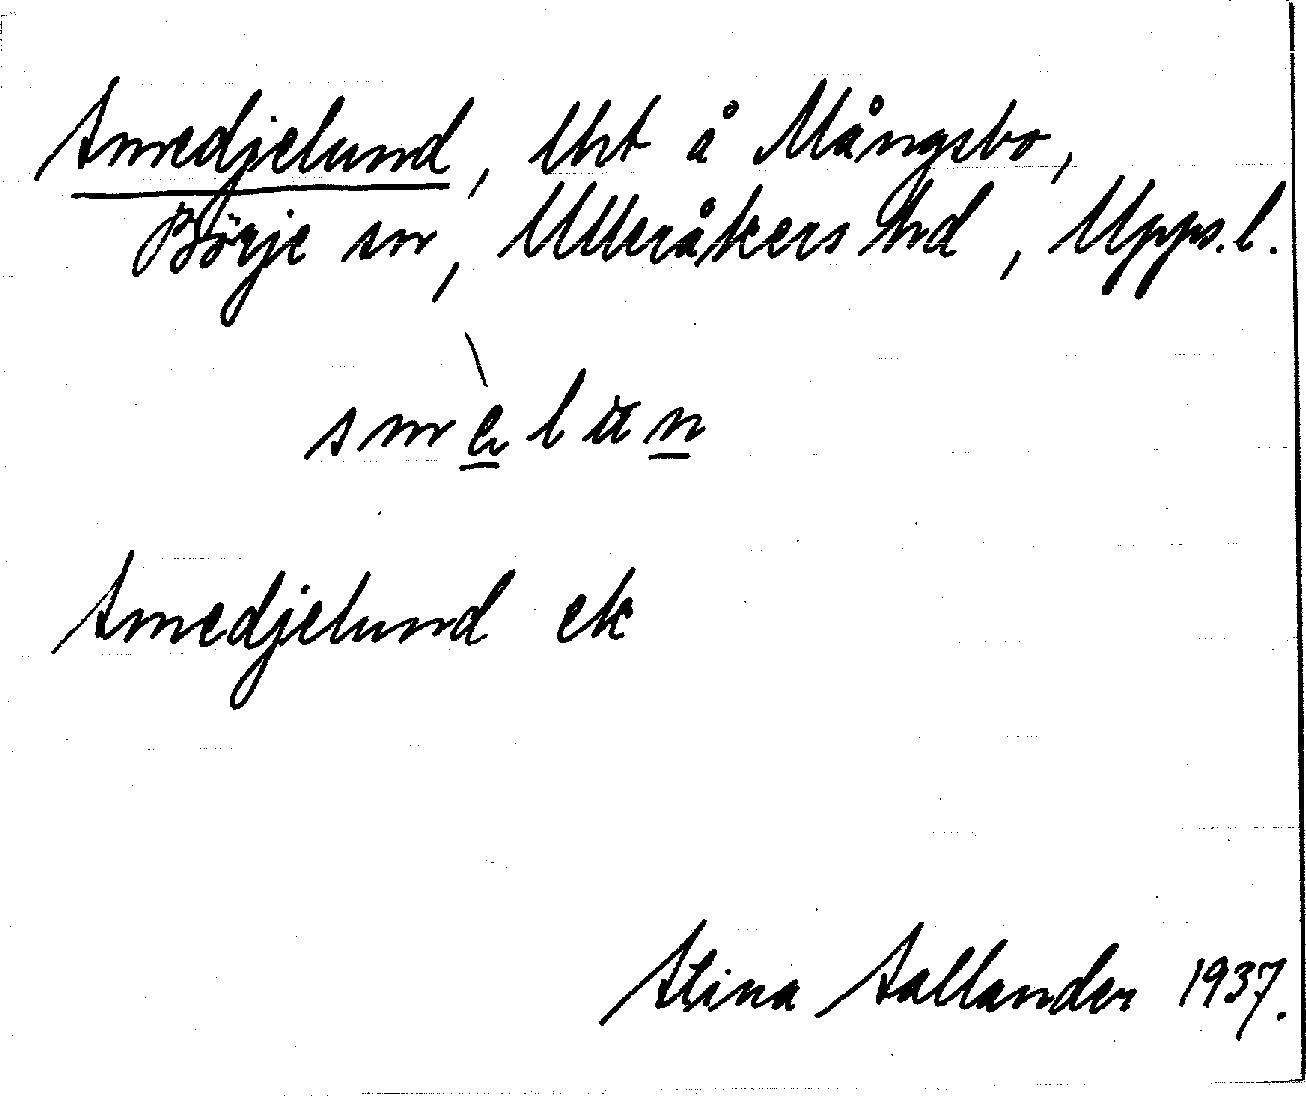 Smedjelund, lht å Mångsbo,
Börje sn, Ulleråkers hd, Upps. l.
smèlun
Smedjelund ek
Stina Sallander 1937.